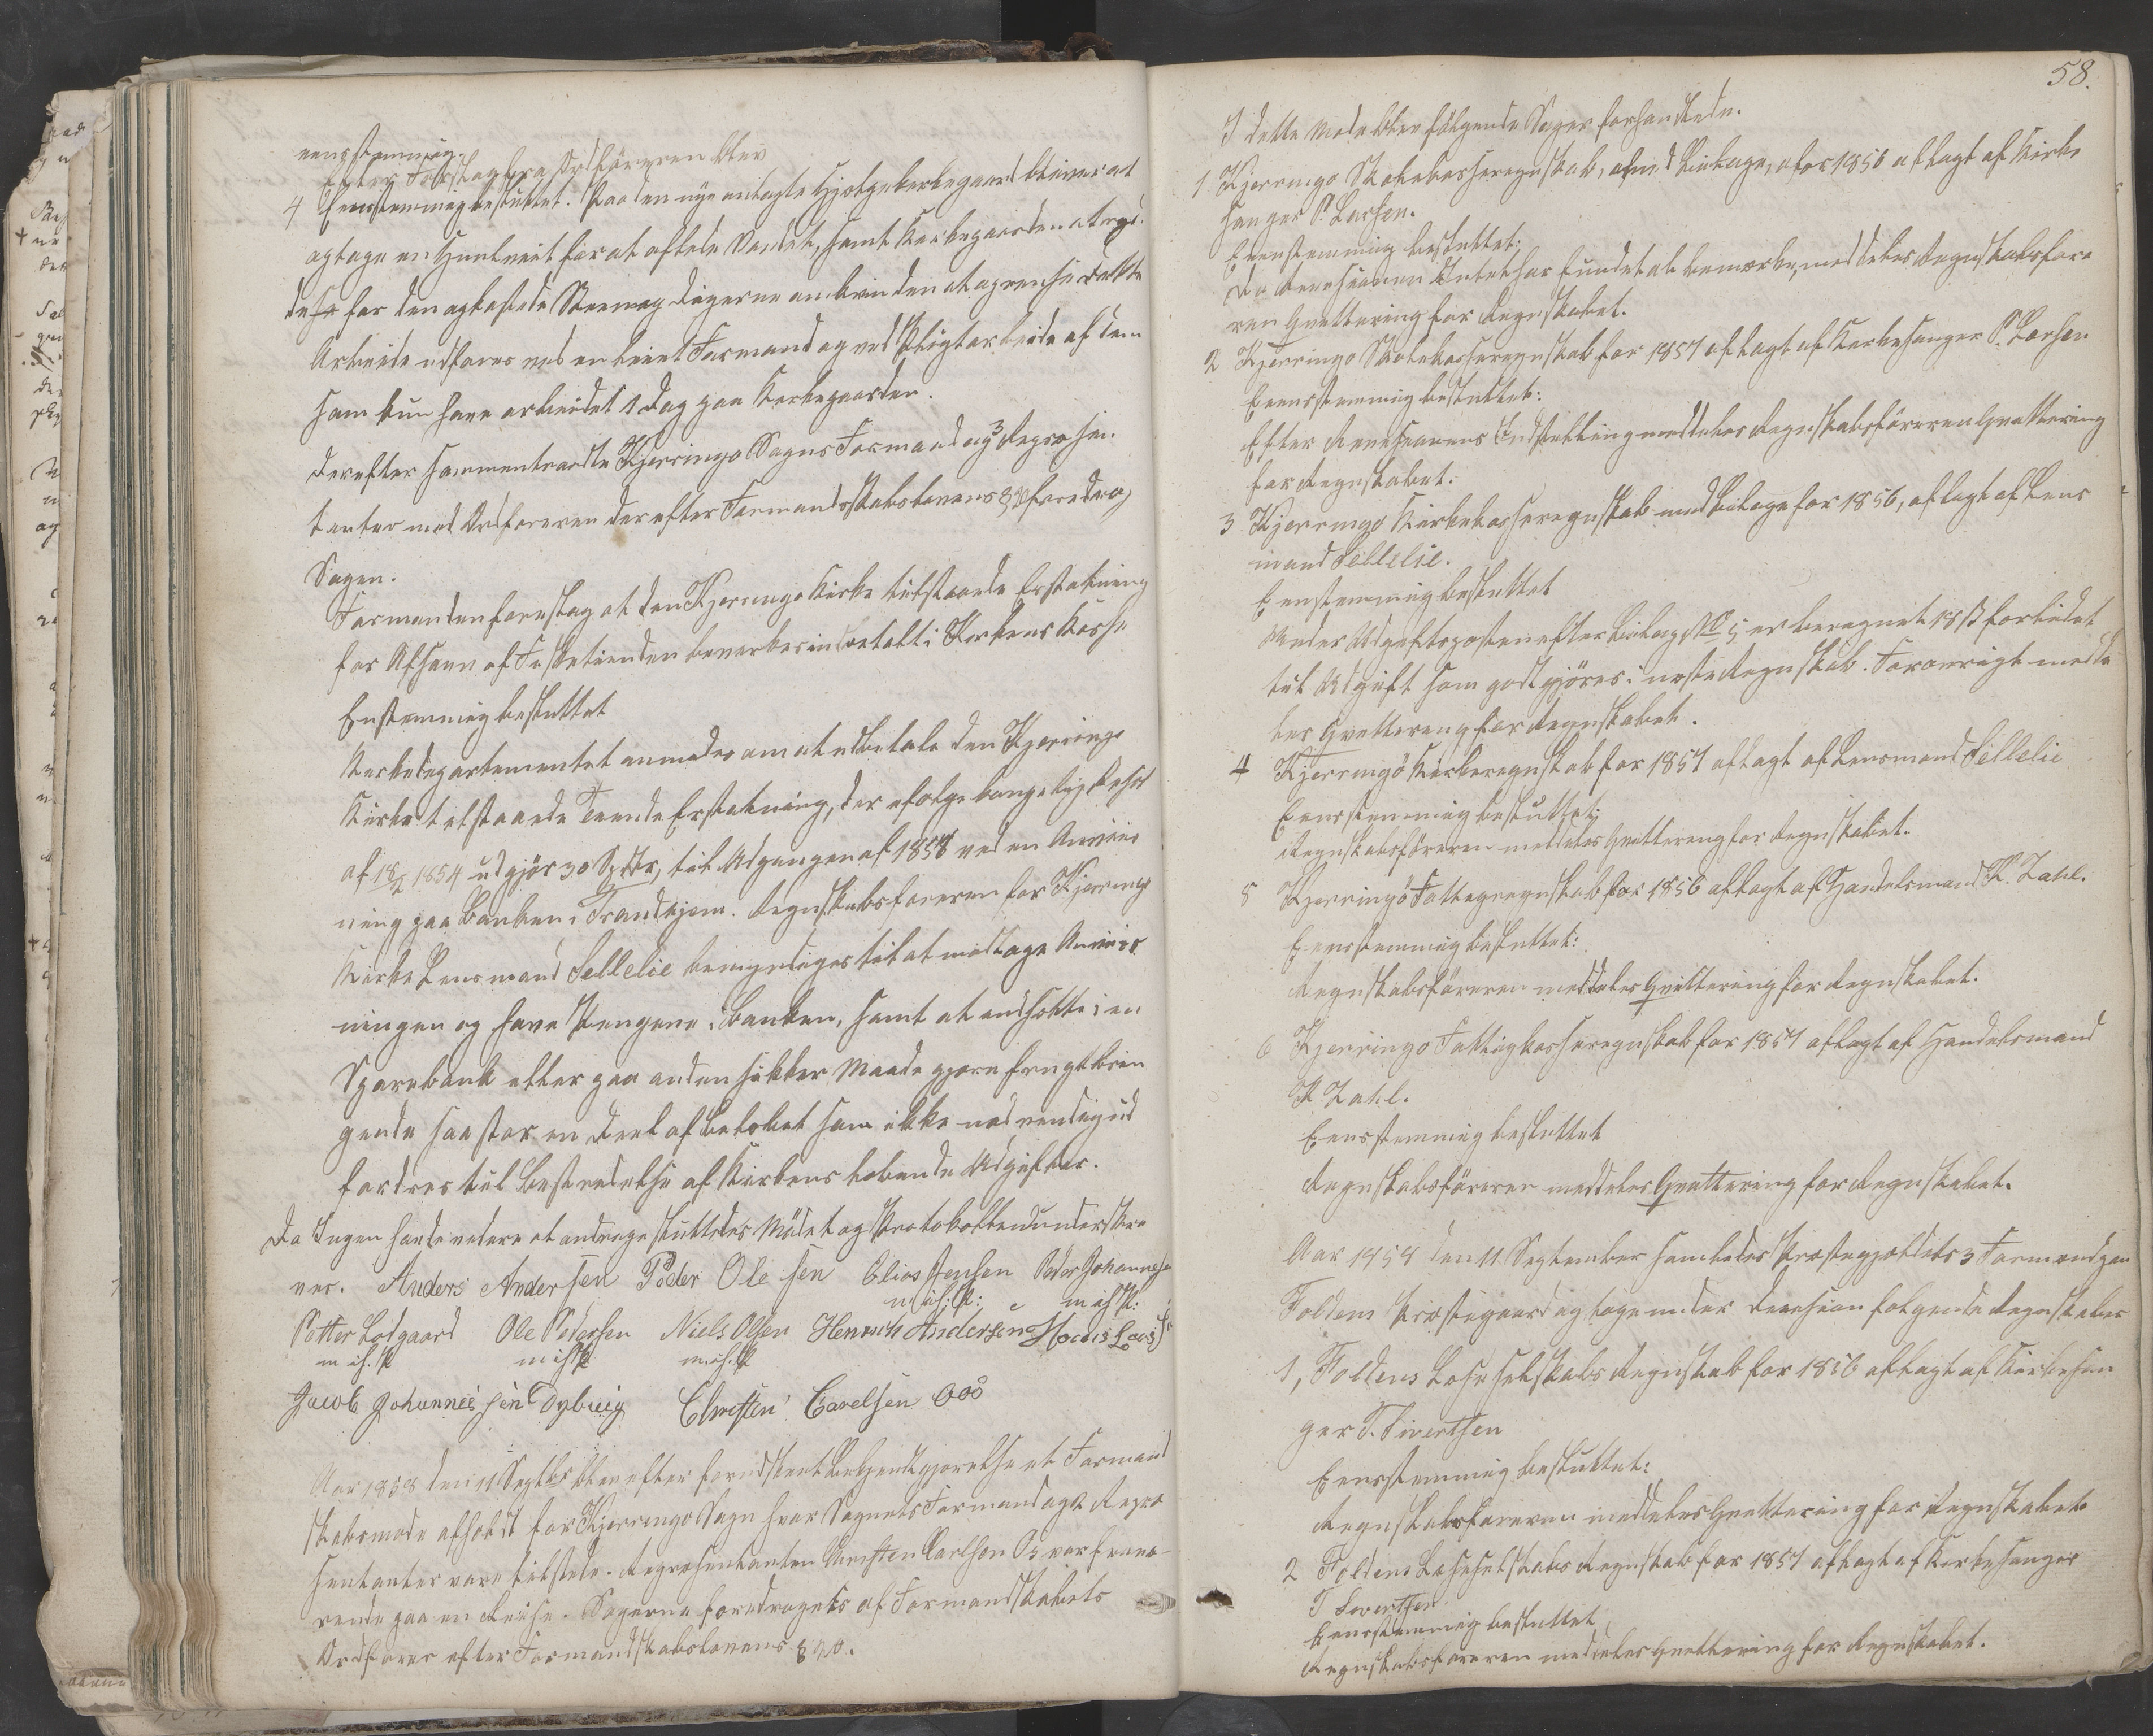 eensstemmig.
Efter Forslag fra Ordföreren blev
4 Eensstemmig besluttet. Paa den nye anlagte Kirkegaard bliver at
optage en for at aflede Vandet, samt Kirkegaarden at ryd-
des for den opkastede Steen og Digerne omkring den at Dette
Arbeide udføres ved en leiet Formand og ved Pligtarbeide af dem
som kun have arbeidet 1 Dag paa Kirkegaarden.
Derefter sammentraadte Kjerringø Sogns Formand og 3 Repræsen-
tanter med Ordføreren der efter Formandsskabslovens § foredrog
Sagen.
Formanden foreslog at den Kjerringø Kirke tilstaaede Erstatning
for Afsavn af Fisketienden bevirkes indbetalt i Kirkens Kasse
Enstemmig besluttet
Kirkedepartementet anmodes om at udbetale den Kjerringø
Kirke tilstaaede Tiende Erstatning, der ifølge kongelig Resol
af 1854 udgjör 30 Spdlr, til Udgangen af 1858 ved en Anviis
ning paa Banken i Trondhjem. Regnskabsføreren for Kjerringø
Kirke Lensmand Sellelie bemyndiges til at modtage Anviis
ningen og hæve Pengene i Banken, samt at indsætte i en
Sparebank eller paa anden sikker Maade gjøre frugtbrin
gende saa stor en Deel af Beløbet som ikke nødvendig ud
fordres til Bestridelse af Kirkens løbende Udgifter.
Da Ingen havde videre at andrage sluttedes Mödet og Protokollen underskre
ves. Anders Andersen Peder Olesen Elias Jensen Peder Johannesen
m.i.h.P: m i h P:
Petter Lodgaard Ole Pedersen Niels Olsen Henrich Andersen
m i h. P m i h P m. i h. P
Jacob Johannessen Dybvig Christen Carelsen
Aar 1858 den 11 Septbr blev efter forudskeet Bekjendtgjørelse et Formand
skabsmøde afholdt for Kjerringø Sogn hvor Sognets Formand og 2 Repræ
sentanter vare tilstede. Repræsentanten Christen Carlsen Os var fravæ-
rende paa en Reise. Sagerne foredroges af Formandskabets
Ordfører efter Formandskabslovens §
58.
I dette Møde blev følgende Sager forhandlede.
1 Kjerringø Skolekasseregnskab, med Bilage, for 1856 aflagt af Kirke
sanger P. Larsen.
Eenstemmig besluttet:
Da Revisionen Intet har fundet at bemærke, meddeles Regnskabsføre
ren Qvittering for Regnskabet.
2 Kjerringø Skolekasseregnskab for 1857 aflagt af Kirkesanger P. Larsen
Eensstemmig besluttet:
Efter Revisionens Indstilling meddeles Regnskabsföreren Qvittering
for Regnskabet.
3 Kjerringø Kirkekasseregnskab med Bilage for 1856, aflagt af Lens
mand Sellelie.
Eenstemmig besluttet
Under Udgiftsposten efter Bilag No 5 er beregnet 18 ß forlidet
til Udgift som godtgjöres i næste Regnskab. Forøvrigt medde
les Qvittering for Regnskabet.
4 Kjerringö Kirkeregnskab for 1857 aflagt af Lensmand Sellelie
Eensstemmig besluttet:
Regnskabsföreren meddeles Qvittering for Regnskabet.
5 Kjerringö Fattigregnskab for 1856 aflagt af Handelsmand K. Zahl.
Eensstemmig besluttet:
Regnskabsföreren meddeles Qvittering for Regnskabet.
6 Kjerringø Fattigkasseregnskab for 1857 aflagt af Handelsmand
K Zahl.
Eensstemmig besluttet
Regnskabsföreren meddeles Qvittering for Regnskabet.
Aar 1858 den 11 September samledes Præstegjeldets 3 Formænd paa
Foldens Præstegaard og toge under Revision følgende Regnskaber
1, Foldens Læseselskabs Regnskab for 1856 aflagt af Kirkesan
ger T. Sivertsen
Eensstemmig besluttet:
Regnskabsføreren meddeles Qvittering for Regnskabet
2 Foldens Læseselskabs Regnskab for 1857 aflagt af Kirkesanger
T Sivertsen
Eensstemmig besluttet
Regnskabsføreren meddeles Qvittering for Regnskabet.